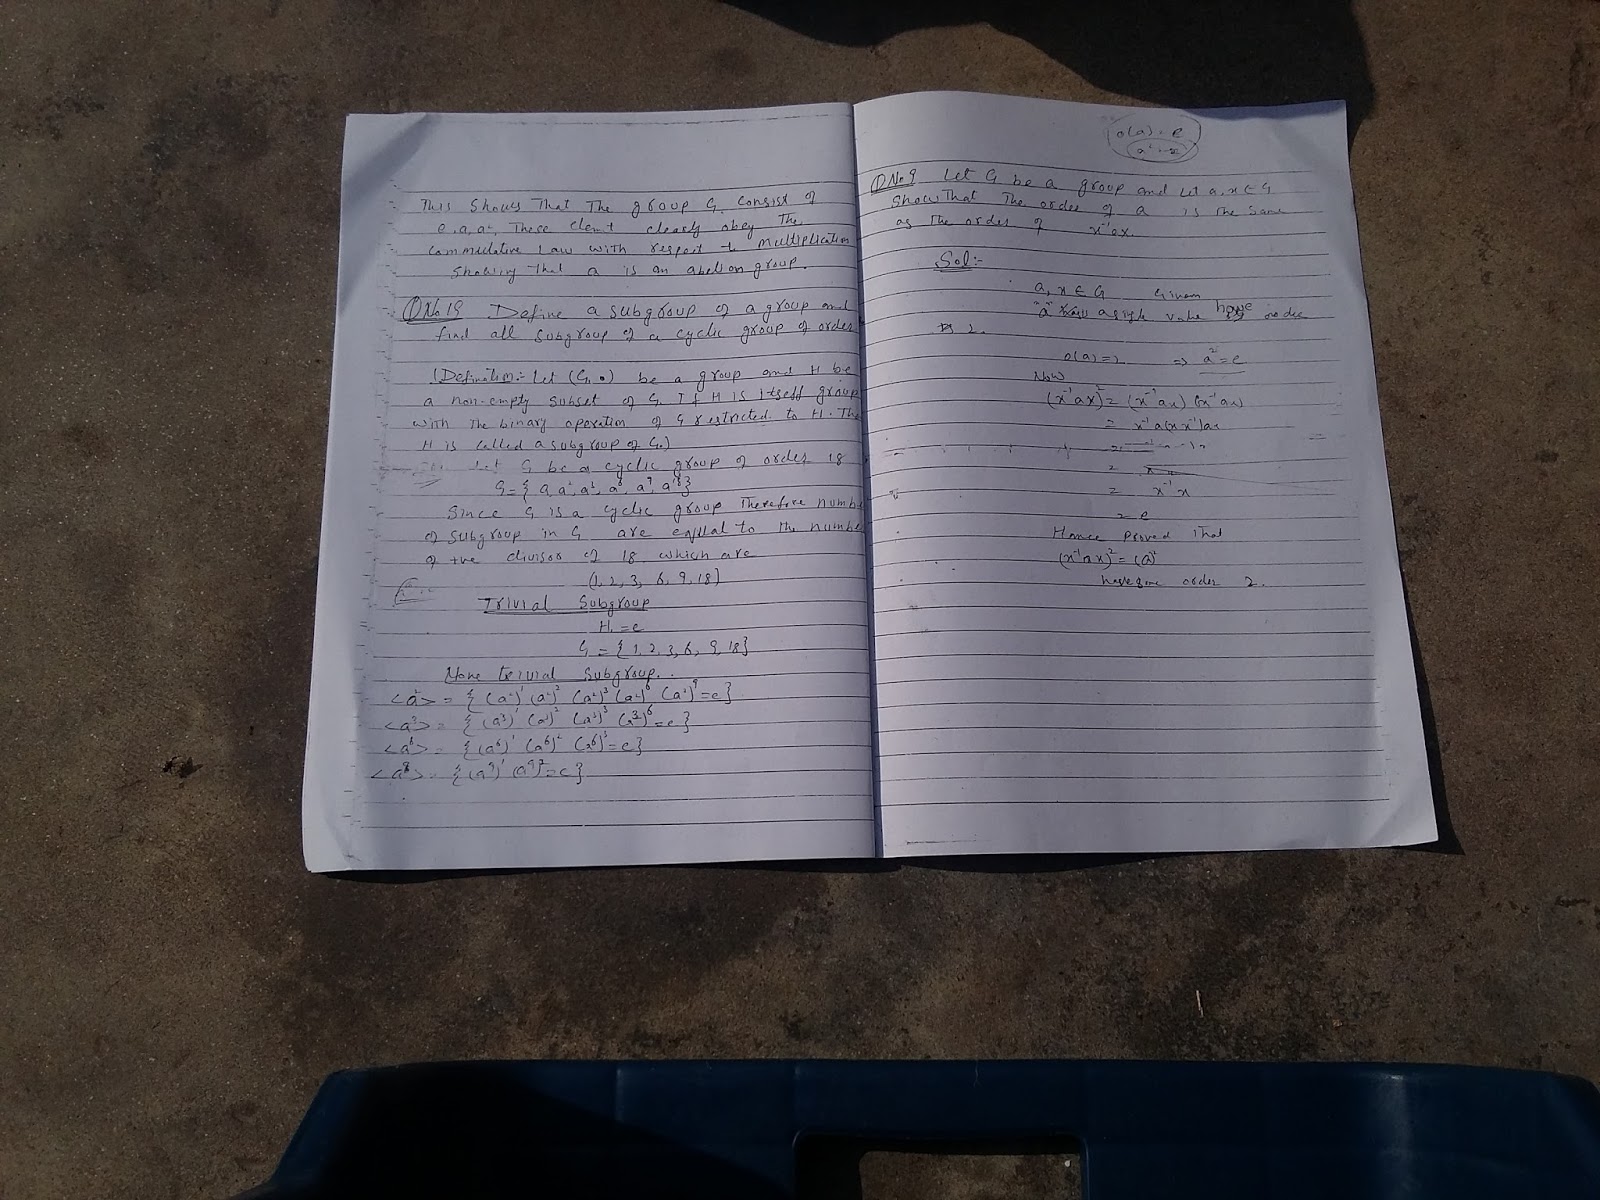 This Shows That The group G Consist of
e, a, a², These elemt clearly obey The
Commulative Law with respect to Multiplication
Showing that a is an abelian group.
Q No 19 Define a subgroup of a group and
find all subgroup of a cyclic group of order
(Defination:- Let (G, •) be a group and H be
a non-empty subset of G. If H is itself group
with the binary operation of G restricted to H. The
H is called a subgroup of G.)
Let G be a cyclic group of order 18
G = {a, a², a³, a⁶, a⁹, a¹⁸}
Since G is a cyclic group Therefore numbe
of subgroup in G are eqUal to the numbe
of +ve divisor of 18 which are
(1, 2, 3, 6, 9, 18)
Trivial Subgroup
H₁ = e
G = {1, 2, 3, 6, 9, 18}
None trivial Subgroup.
<a²> = {(a²)¹ (a²)² (a²)³ (a²)⁶ (a²)⁹ = e}
<a³> = {(a³)¹ (a³)² (a³)³ (a³)⁶ = e}
<a⁶> = {(a⁶)¹ (a⁶)² (a⁶)³ = e}
<a⁹> = {(a⁹)¹ (a⁹)² = e}
o(a) = e
Q No 9 Let G be a group and let a, x ∈ G
Show That The order of a is the same
as the order of x⁻¹ax.
Sol:-
a, x ∈ G Given
value have
2.
o(a) = 2 => a² = e
Now
(x⁻¹ax)² = (x⁻¹ax) (x⁻¹ax)
= x⁻¹a(xx⁻¹)ax
=
= x⁻¹x
= e
Hence proved That
(x⁻¹ax)² = (a)²
have same order 2.